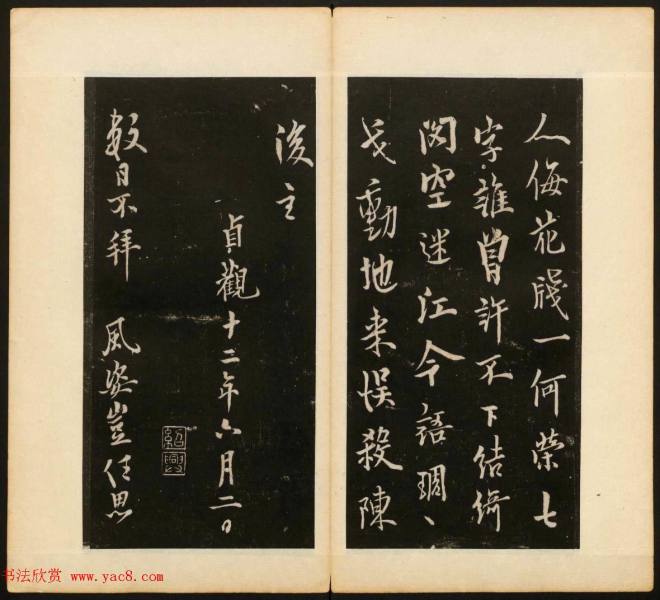 人侮花牋一何榮七
字誰曾許不下結綺
閣空迷江令語琱
戈動地来悮殺陳
後主
貞觀十二年六月二日
紹興
數日不拜 風姿豈任思
书法欣赏 www.yac8.com